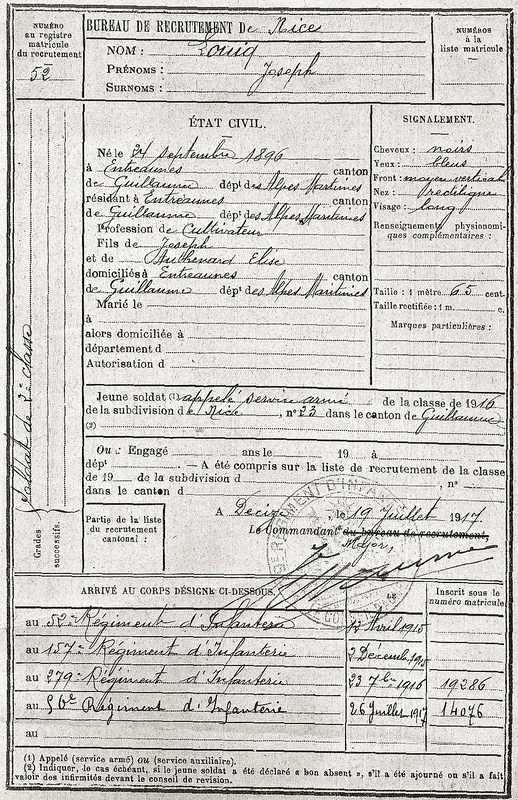 NUMÉRO
au registre
matricule
du recrutement
52
BUREAU DE RECRUTEMENT De Nice
NOM : Louiq
PRÉNOMS : Joseph
SURNOMS :
NUMÉROS
à la
liste matricule
ÉTAT CIVIL.
Né le 24 septembre 1896
à Entraunes canton
de Guillaume dépt des Alpes Maritimes
résidant à Entraunes canton
de Guillaume dépt des Alpes Maritimes
Profession de Cultivateur
Fils de Joseph
et de Elise
domiciliés à Entraunes canton
de Guillaume dépt des Alpes Maritimes
Marié le
à
alors domiciliée à
département d
Autorisation d
SIGNALEMENT.
Cheveux : noirs
Yeux : bleus
Front : moyen vertical
Nez : rectiligne
Visage : long
Renseignements physionomi-
ques complémentaires :
Taille : 1 mètre 65 cent.
Taille rectifiée : 1 m. c.
Marques particulières :
Jeune soldat (1) appelé service armé de la classe de 1916
de la subdivision de Nice, n° 23 dans le canton de Guillaume
(2)
Ou : Engagé ans le 19 à
dépt . — A été compris sur la liste de recrutement de la classe
de 19 de la subdivision d , n°
dans le canton d
Partie de la liste
du recrutement
cantonal :
A Decize, le 19 Juillet 1917.
Le Commandant du bureau de recrutement,
Major,
Soldat de 2e classe
Grades
successifs.
ARRIVÉ AU CORPS DÉSIGNÉ CI-DESSOUS.
LE
Inscrit sous le
numéro matricule
au 52e Régiment d'Infanterie 12 Avril 1915
au 157e Régiment d'Infanterie 2 Décemb 1915
au 279e Régiment d'Infanterie 23 7bre 1916 19286
au 56e Régiment d'Infanterie 26 Juillet 1917 14076
au
(1) Appelé (service armé) ou (service auxiliaire).
(2) Indiquer, le cas échéant, si le jeune soldat a été déclaré « bon absent », s'il a été ajourné ou s'il a fait
valoir des infirmités devant le conseil de revision.